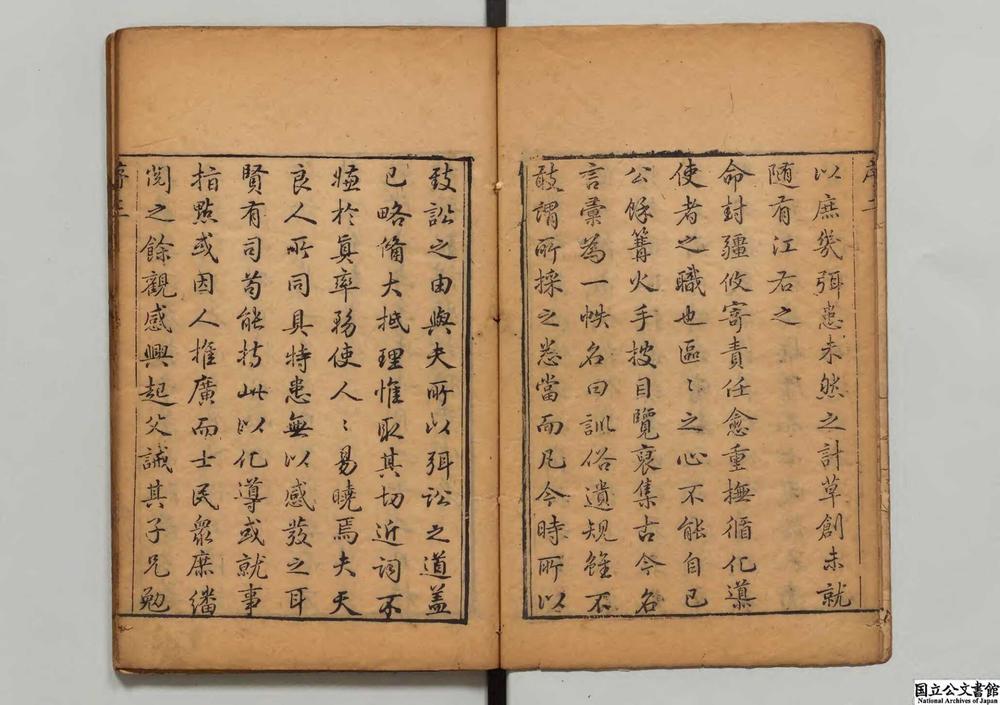 序二
以庶幾弭患未然之計草創未就
隨有江右之
命封疆攸寄責任愈重撫循化導
使者之職也區〻之心不能自已
公餘篝火手披目覽裒集古今名
言彙為一帙名曰訓俗遺規雖不
敢謂所採之悉當而凡今時所以
致訟之由與夫所以弭訟之道蓋
已略備大抵理惟取其切近詞不
嫌於真率務使人〻易曉焉夫天
良人所同具特患無以感發之耳
賢有司苟能持此以化導或就事
指點或因人推廣而士民眾庶繙
閱之餘觀感興起父誡其子兄勉
序三
国立公文書館
National Archives of Japan